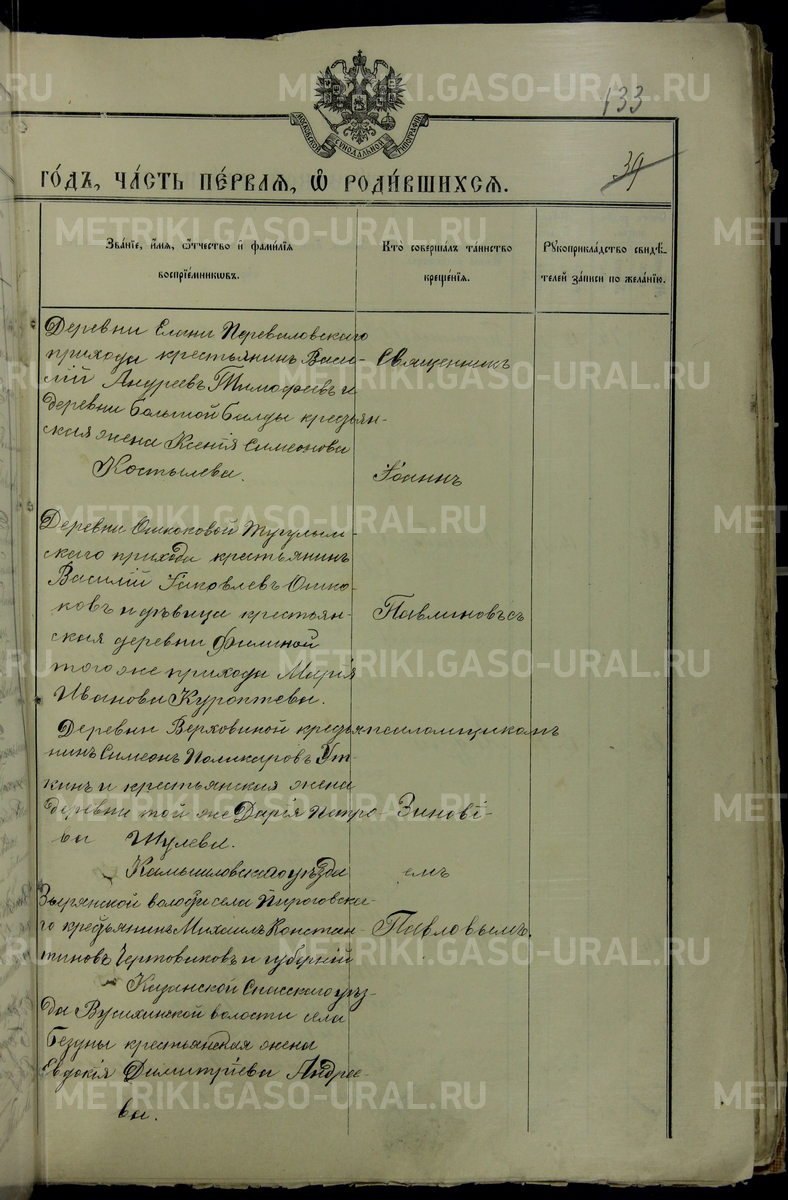 133
39
МОСКОВСКОЙ СѴНОДАЛЬНОЙ ТИПОГРАФІИ
ГО́ДЪ, ЧА́СТЬ ПЕ́РВАЯ, Ѡ҆ РОДИ́ВШИХСЯ.
Зва́нїе, и҆́мя, ѻ҆́тчество и҆ фами́лїя
воспрїе́мникѡвъ.
Кто̀ соверша́лъ та́инство
креще́нїя.
Рꙋкоприкла́дство свидѣ́-
телей за́писи по жела́нїю.
Деревни Елани Переваловскаго
прихода крестьянинъ Васи-
лій Андреевъ Тимофеевъ и
деревни Большой Балды крестьян-
ская жена Ксенія Симеонова
Костылева.
Священникъ
Іоаннъ
Деревни Ошкоковой Тугулым-
скаго прихода крестьянинъ
Василій Іаковлевъ Ошко-
ковъ и дѣвица крестьян-
ская деревни Филиной
того же прихода Марія
Иванова Куроптева.
Павлиновъ съ
Деревни Верховиной крестья-
нинъ Симеонъ Поликарповъ Ут-
кинъ и крестьянская жена
деревни той же Дарія Петро-
ва Шулева.
псаломщикомъ
ЗиновІ-
емъ
Павловымъ.
Камышловскаго уѣзда
Зырянской волости села Пироговска-
го крестьянинъ Михаилъ Констан-
тиновъ Чертовиковъ и губерній
Казанской Спасскаго уѣз-
да Вусихинской волости села
Бездны крестьянская жена
Евдокія Димитріева Андрее-
ва.
METRIKI.GASO-URAL.RU